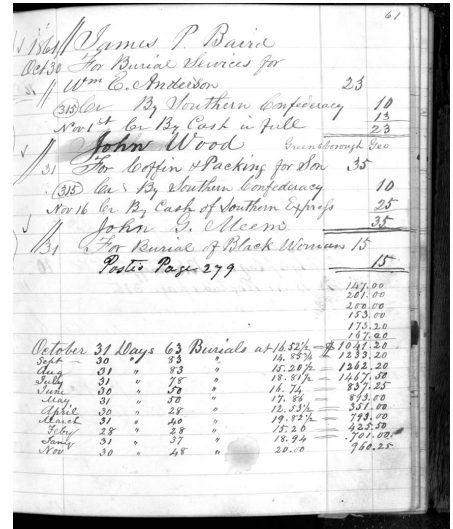 61
1861 // James P. Baird
Oct 30 For Burial Services for
// Wm E. Anderson 23
(315) Cr By Southern Confederacy 10
Nov 1st Cr By Cash in full 13
23
// John Wood Greensborough Geo
31 For Coffin & Packing for Son 35
(315) Cr By Southern Confederacy 10
Nov 16 Cr By Cash of Southern Express 25
35
// John G. Meem
31 For Burial of Black Woman 15
Posted Page 279 15
147.00
201.00
200.00
153.00
173.20
167.00
October 31 Days 63 Burials at 16.52½ = $1041.20
Sept 30 " 83 " 14.85½ = 1233.20
Aug 31 " 83 " 15.20½ = 1262.20
July 31 " 78 " 18.81½ = 1467.50
June 30 " 50 " 16.74 = 837.25
May 31 " 50 " 17.86 = 893.00
April 30 " 28 " 12.53½ = 351.00
March 31 " 40 " 19.82½ = 793.00
Feby 28 " 28 " 15.20 = 425.50
Jany 31 " 37 " 18.94 = 701.00
Nov 30 " 48 " 20.00 960.25